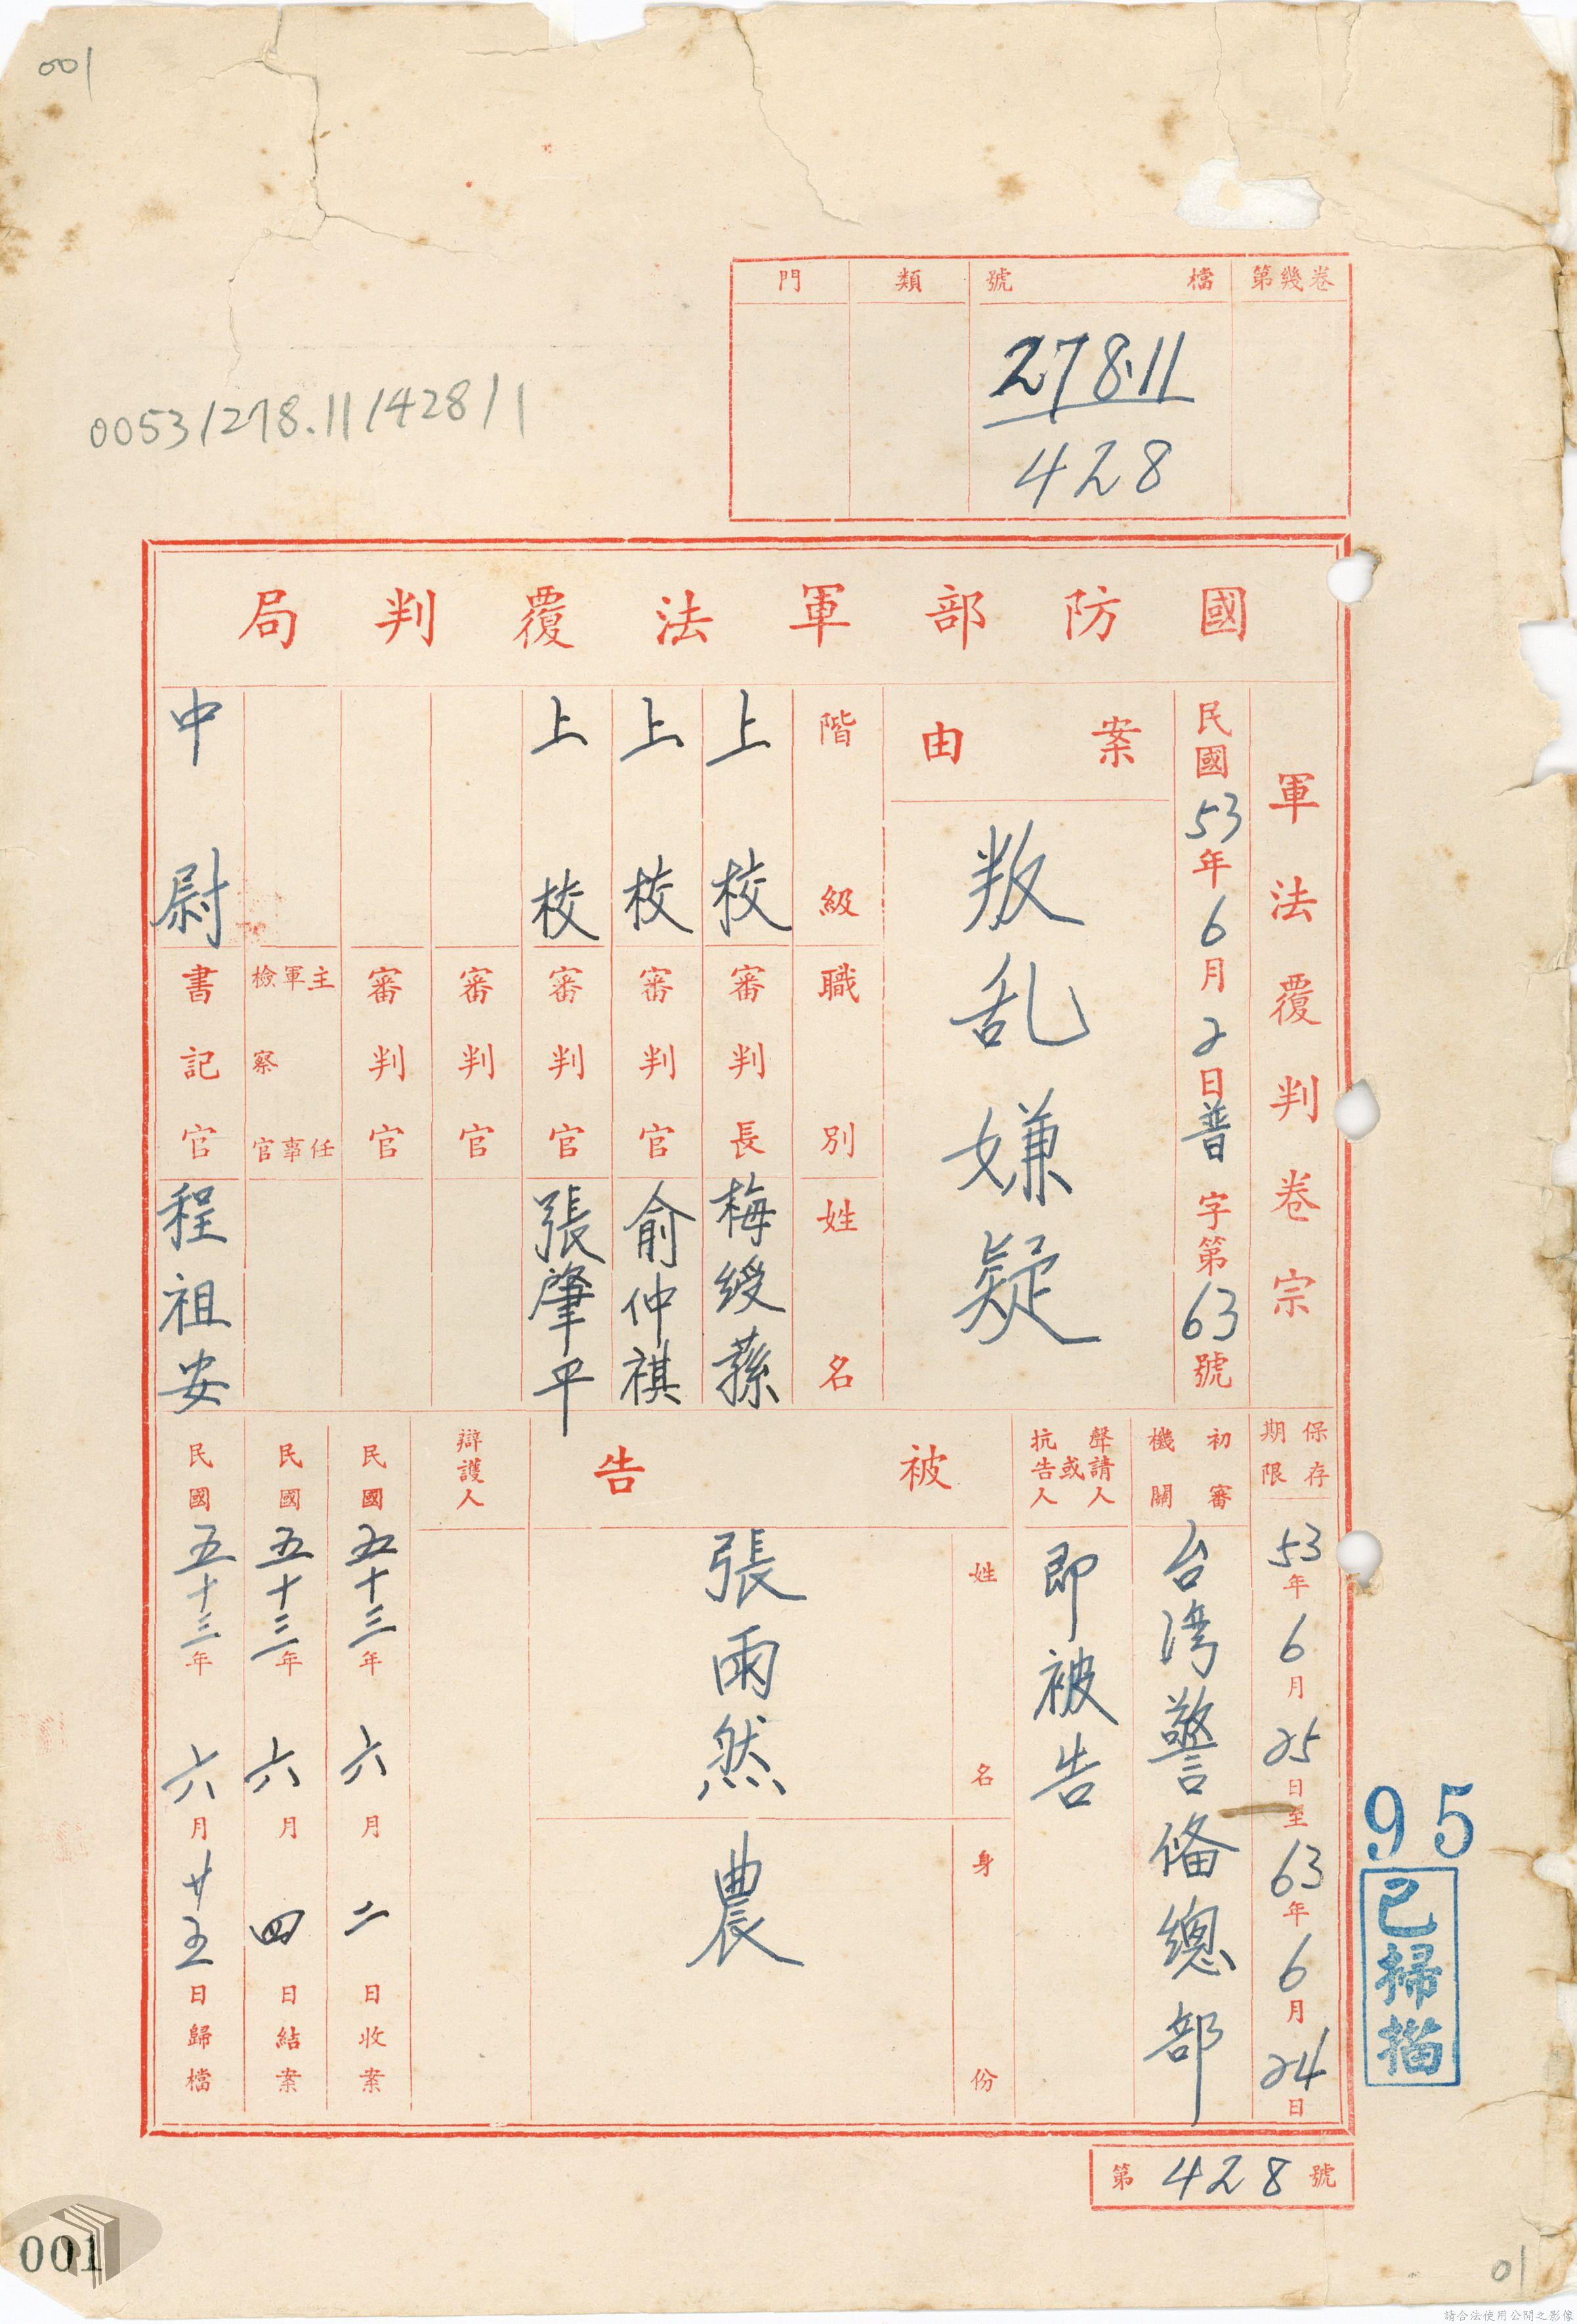 001
第幾卷
檔號
類
門
278.11
428
0053/278.11/428/1
國防部軍法覆判局
軍法覆判卷宗
民國53年6月2日普字第63號
案由
叛乱嫌疑
階級
職別
姓名
上校
審判長
梅綬蓀
上校
審判官
俞仲祺
上校
審判官
張肇平
審判官
審判官
主任軍事檢察官
中尉
書記官
程祖安
保存期限
53年6月25日至63年6月24日
初審機關
台湾警俻總部
聲請人或抗告人
即被告
被告
姓名
張雨然
身份
農
辯護人
民國五十三年六月二日收案
民國五十三年六月四日結案
民國五十三年六月廿五日歸檔
95
已掃描
第428號
001
01
請合法使用公開之影像